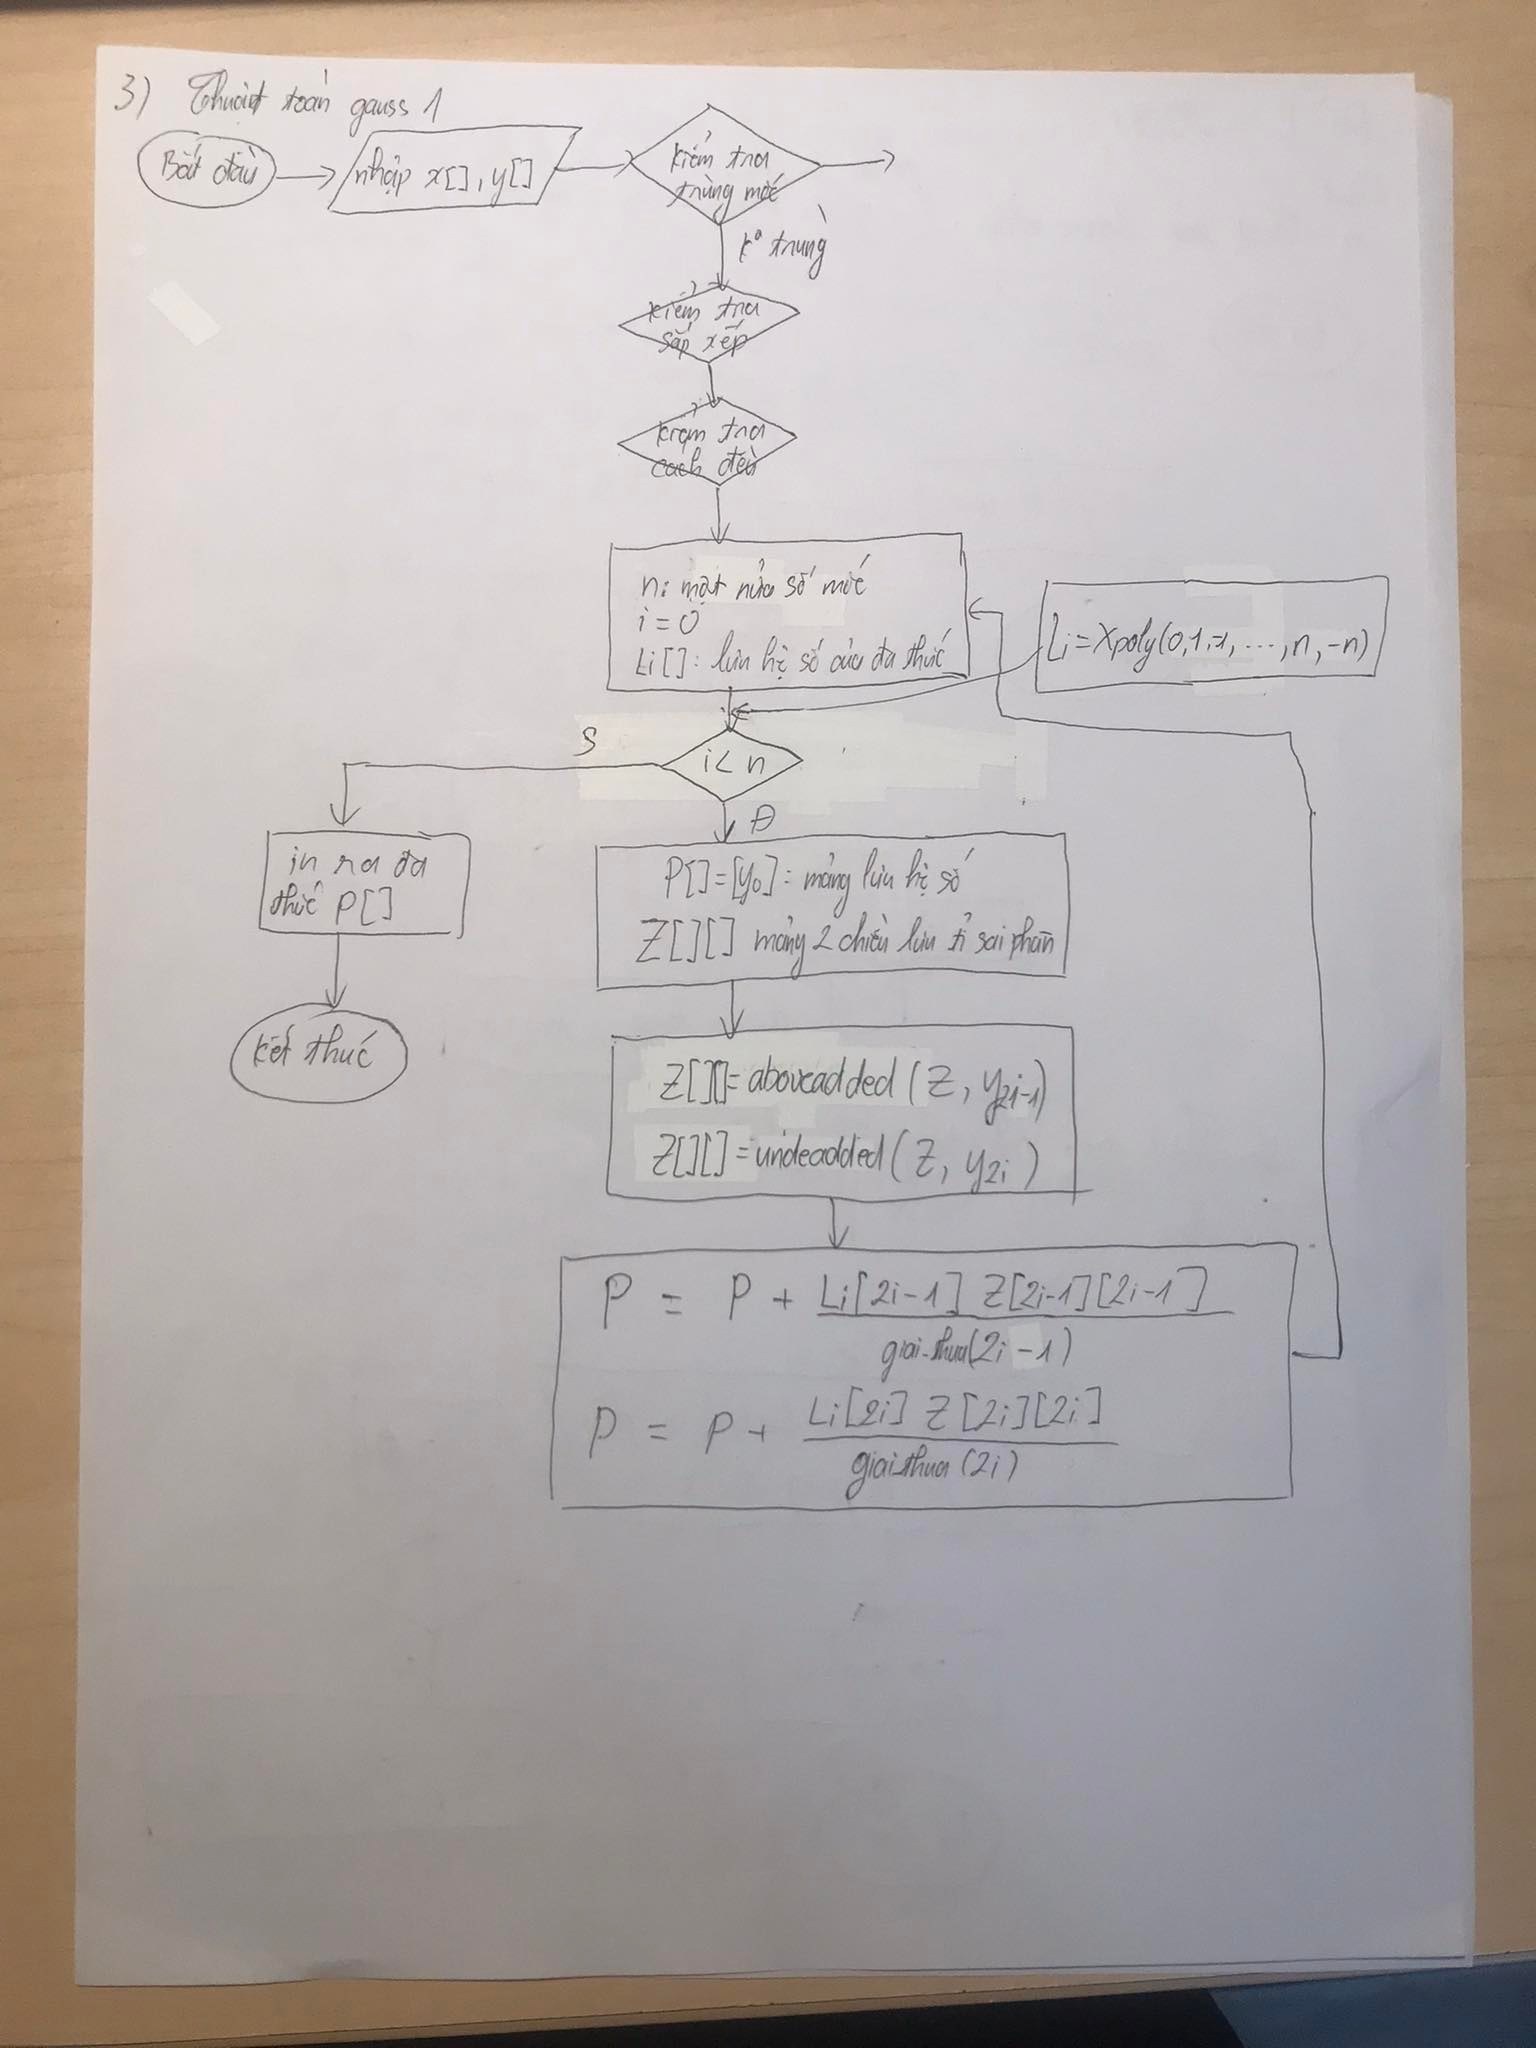 3) Thuật toán gauss 1
Bắt đầu
nhập x[], y[]
kiểm tra
trùng mốc
k° trùng
kiểm tra
sắp xếp
kiểm tra
cách đều
n: một nửa số mốc
i = 0
Li[]: lưu hệ số của đa thức
Li = Xpoly(0,1,-1, ..., n, -n)
i < n
S
Đ
in ra đa
thức P[]
kết thúc
P[] = [y0]: mảng lưu hệ số
Z[][] mảng 2 chiều lưu tỉ sai phân
Z[][] = aboveadded(Z, y2i-1)
Z[][] = undeadded(Z, y2i)
P = P + Li[2i-1] Z[2i-1][2i-1]
giai_thua(2i-1)
P = P + Li[2i] Z[2i][2i]
giai_thua(2i)